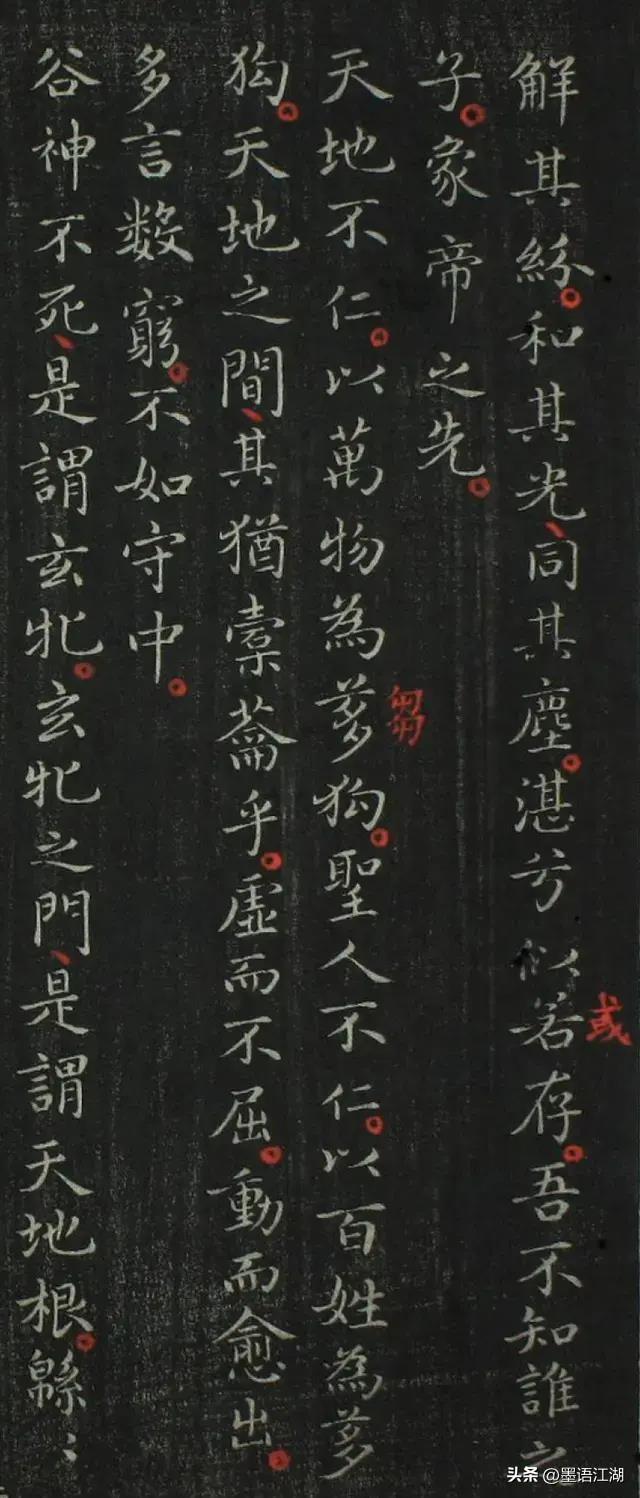 解其紛。和其光、同其塵。湛兮似若存。吾不知誰之
或
子。象帝之先。
芻
天地不仁。以萬物為芻狗。聖人不仁。以百姓為芻
狗。天地之間、其猶橐籥乎。虛而不屈。動而愈出。
多言數窮。不如守中。
谷神不死、是謂玄牝。玄牝之門、是謂天地根。緜〻
头条 @墨语江湖